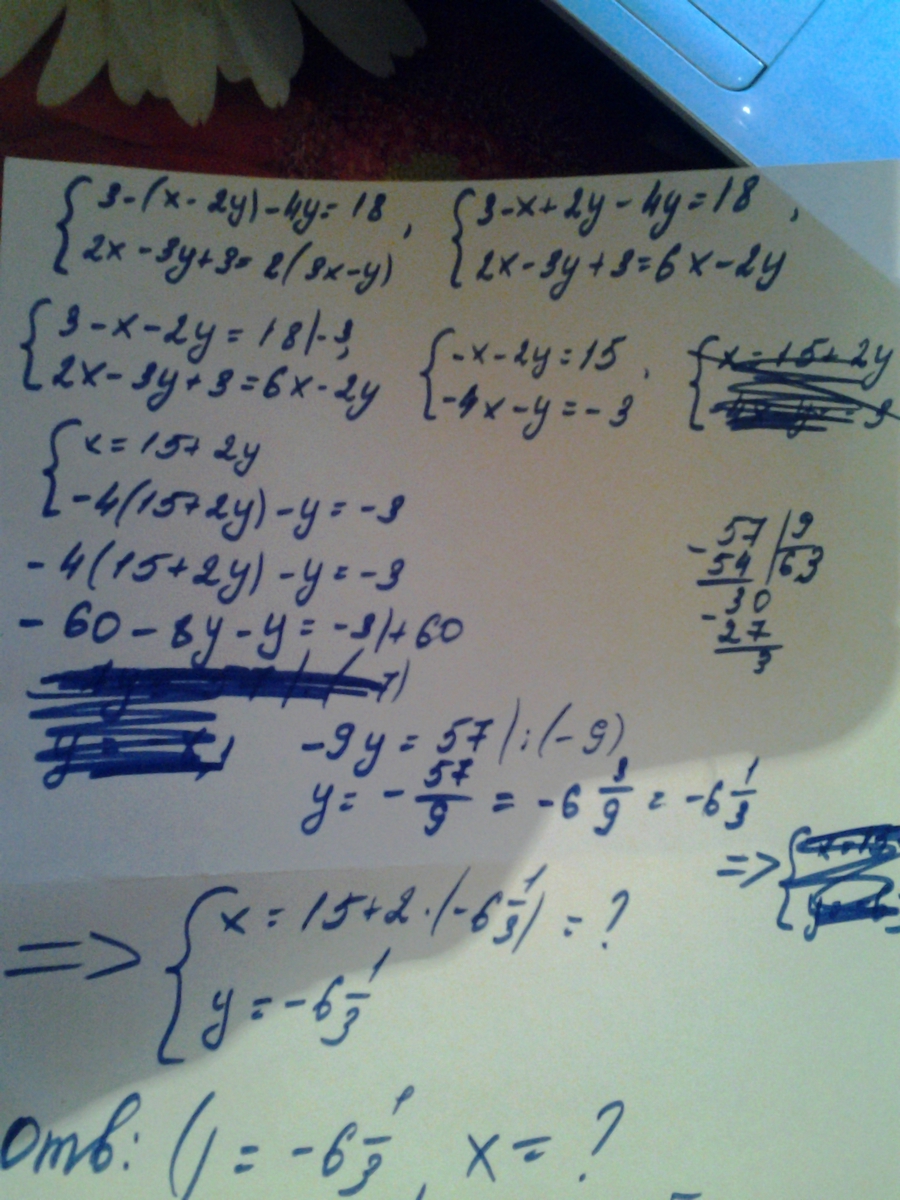 {3-(x-2y)-4y=18, {3-x+2y-4y=18,
{2x-3y+3=2(3x-y) {2x-3y+3=6x-2y
{3-x-2y=18|-3, {-x-2y=15,
{2x-3y+3=6x-2y {-4x-y=-3
{x=15+2y
{-4(15+2y)-y=-3
-4(15+2y)-y=-3
-60-8y-y=-3|+60
-9y=57|:(-9)
y=-57/9=-6 3/9=-6 1/3
-57|9
54|63
-30
27
3
=>
=> {x=15+2·(-6 1/3)=?
{y=-6 1/3
Отв: (y=-6 1/3, x=?